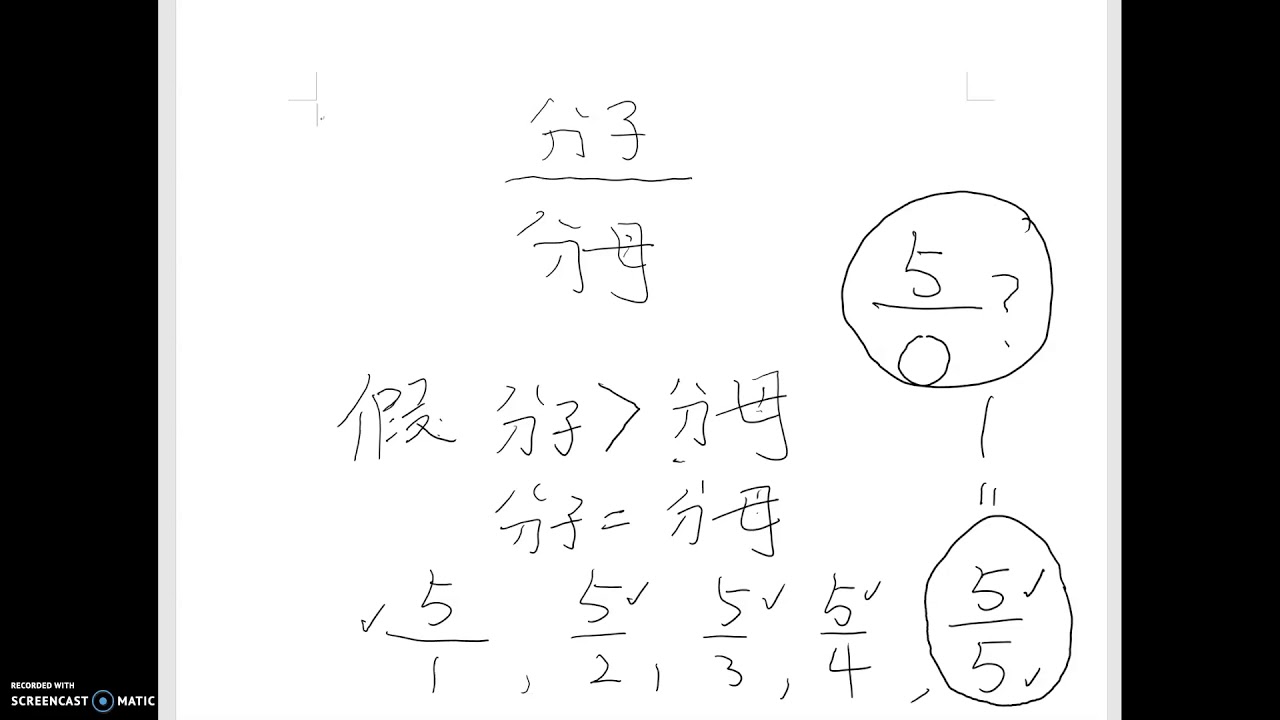 分子
分母
5
○ ?
假 分子 > 分母
1
分子 = 分母
"
✓ 5 5 ✓ 5 ✓ 5 ✓ 5 ✓
1 , 2 , 3 , 4 , 5 ✓
RECORDED WITH
SCREENCAST MATIC